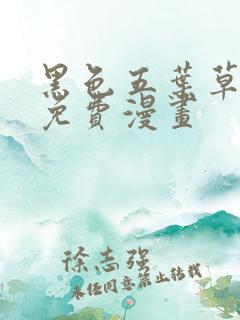 黑色五葉草
免費漫畫
徐志强
未经同意禁止转载